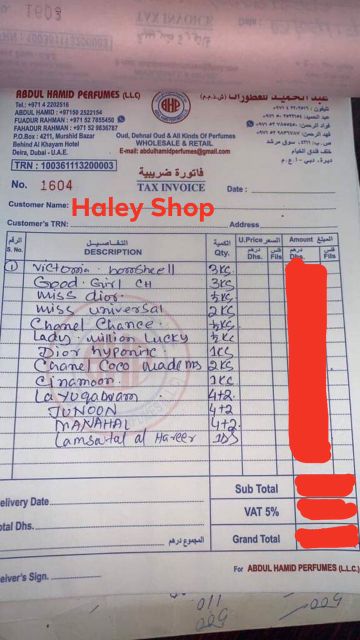 1603
ABDUL HAMID PERFUMES (LLC)
Tel: +971 4 2202516
ABDUL HAMID: +97150 2522154
FUADUR RAHMAN: +971 52 7855450
FAHADUR RAHMAN: +971 52 9836787
P.O.Box: 4211, Murshid Bazar
Behind Al Khayam Hotel
Deira, Dubai - U.A.E.
AHP
Oud, Dehnal Oud & All Kinds Of Perfumes
WHOLESALE & RETAIL
E-mail: abdulhamidperfumes@gmail.com
عبد الحميد للعطورات (ش.ذ.م.م)
TRN : 100361113200003
No. 1604
فاتورة ضريبية
TAX INVOICE
Date :
Customer Name:
Haley Shop
Customer's TRN:
Address
الرقم S. No.
التفاصيل DESCRIPTION
الكمية Qty.
U.Price السعر
Amount المبلغ
درهم Dhs.
فلس Fils
درهم Dhs.
فلس Fils
1 Victoria bomshell 3KG
Good Girl CH 3KG
Miss dior ½KG
Miss universal 2KG
Chanel Chance ½KG
Lady Million Lucky ½KG
Dior hyponinc 1KG
Chanel Coco Mademis 2KG
Cinamoon 1KG
Layuqawam 4+2
JUNOON 4+2
MANAHAL 4+2
Lamsatal al Hareer
Delivery Date
Total Dhs.
المجموع درهم
Sub Total
VAT 5%
Grand Total
Receiver's Sign.
For ABDUL HAMID PERFUMES (L.L.C.)